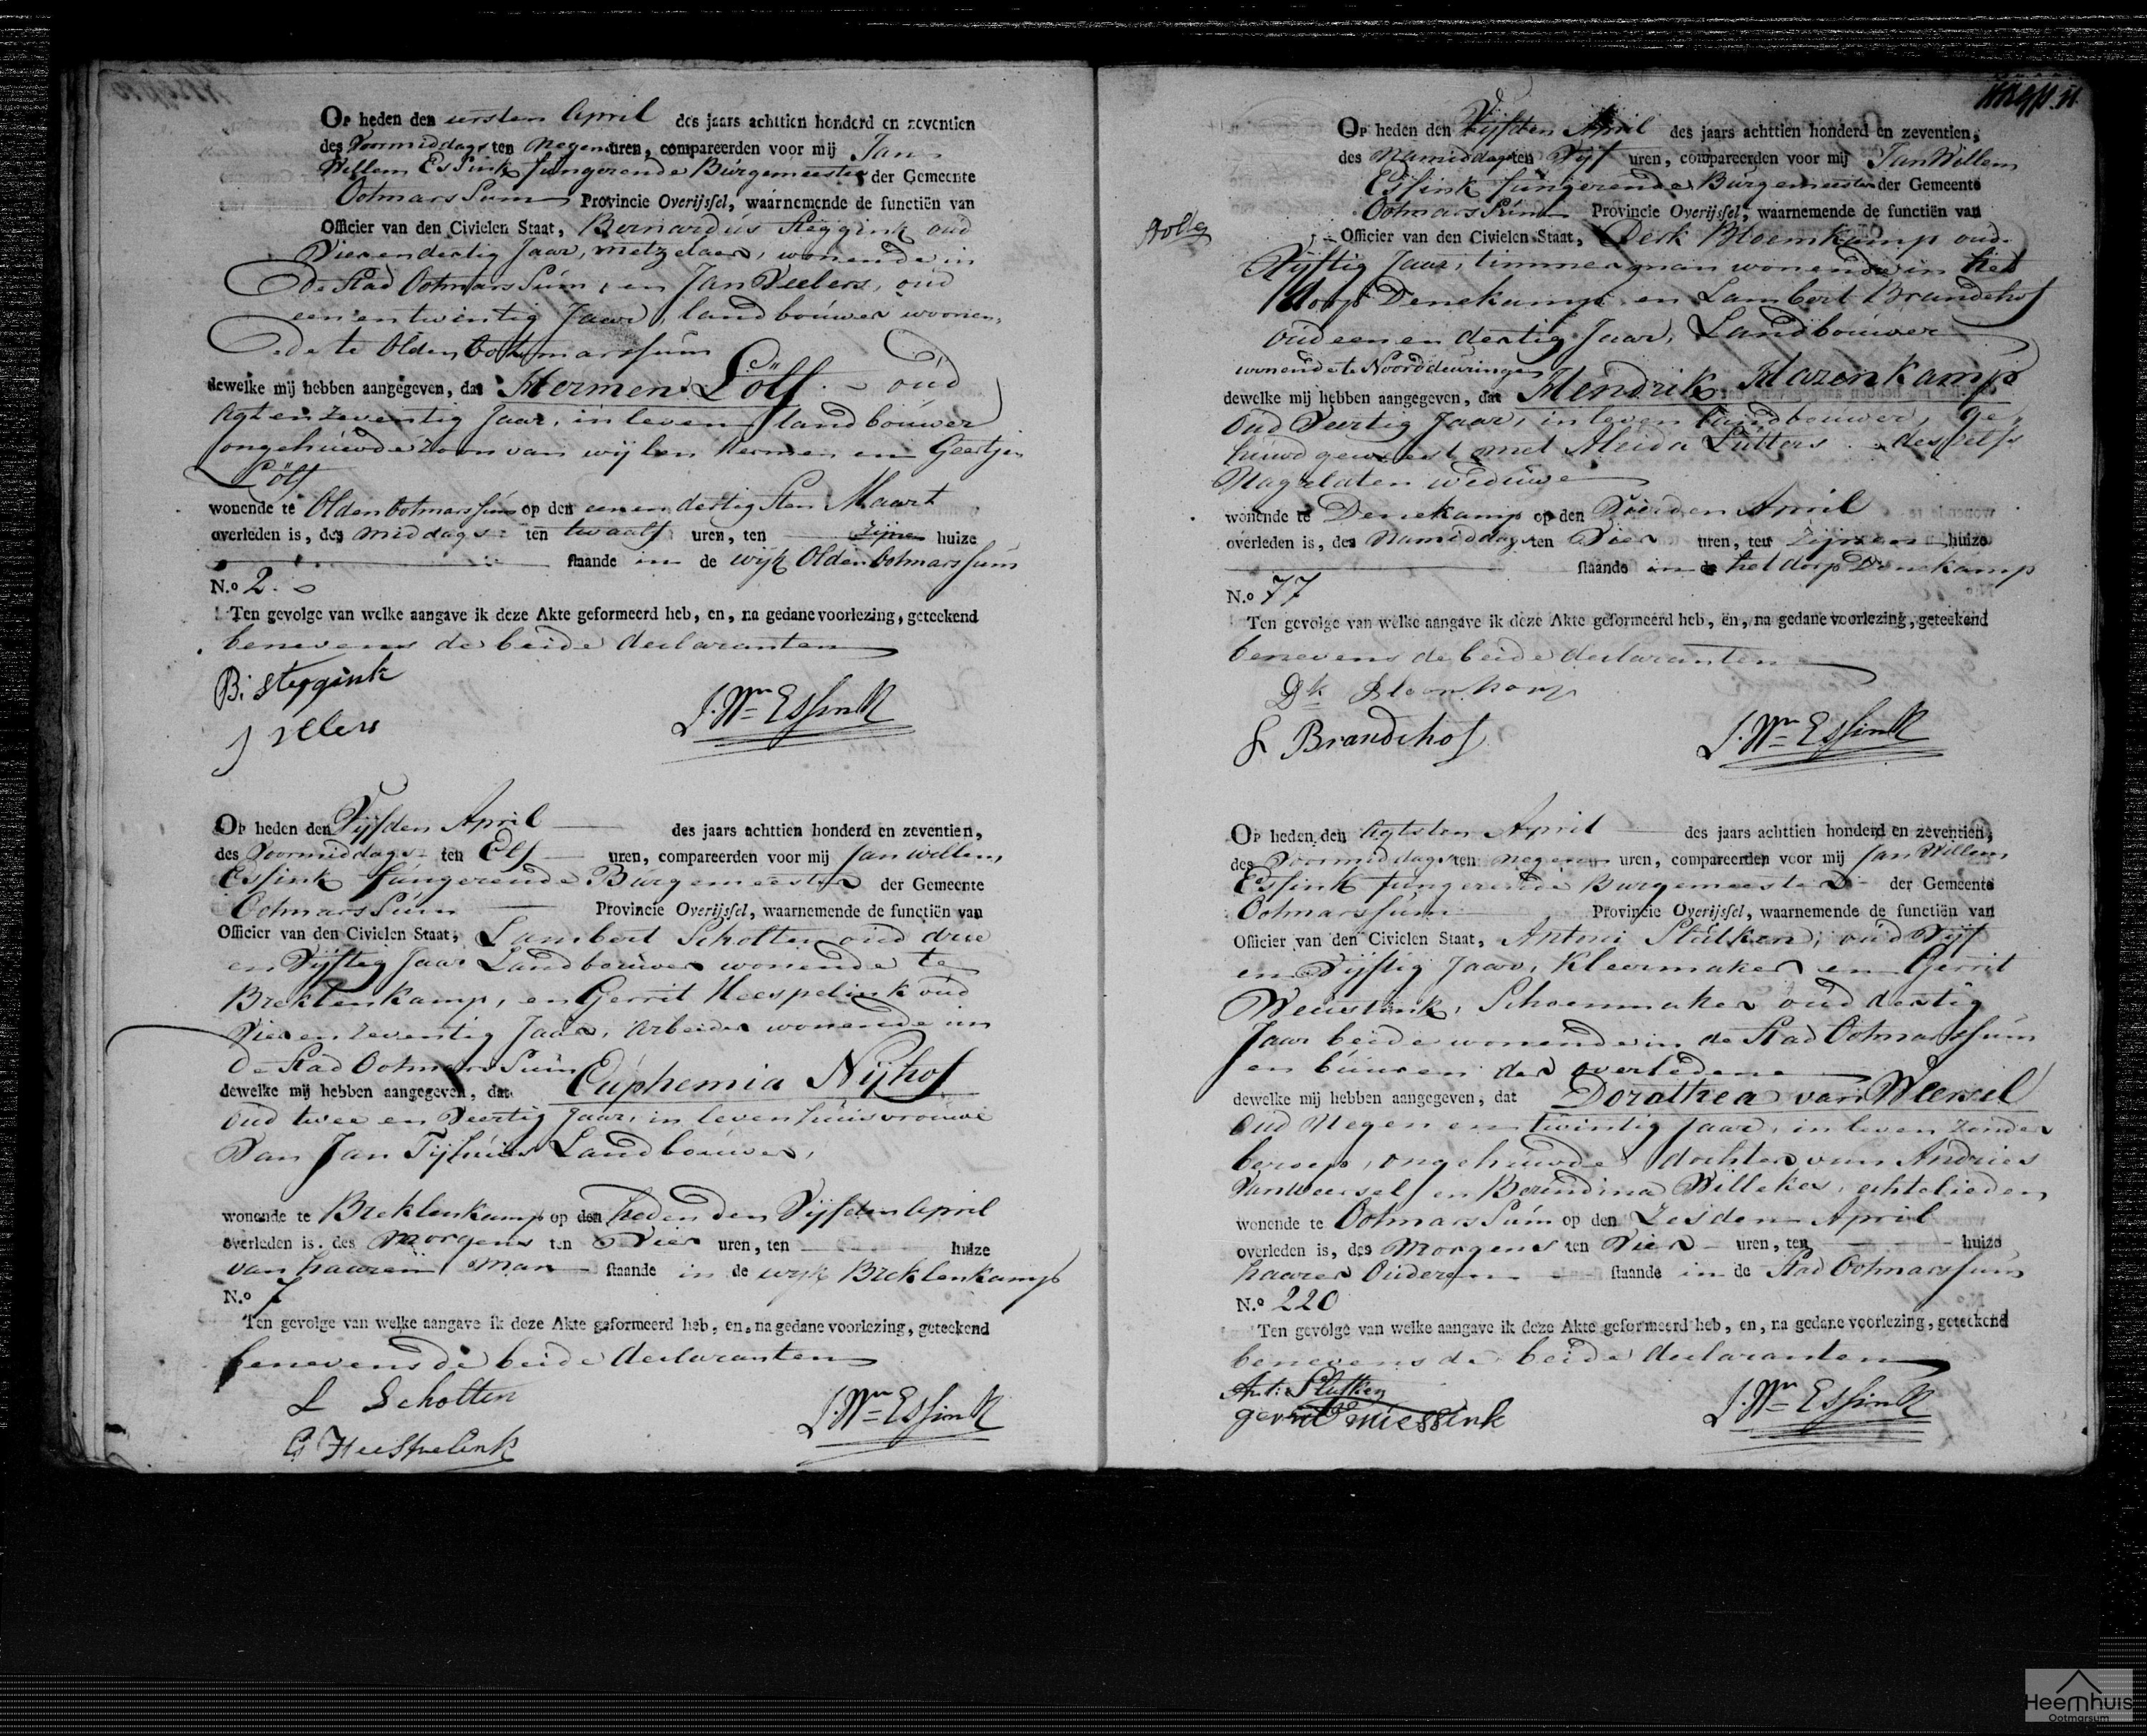 Op heden den eersten April des jaars achttien honderd en zeventien
des Voormiddags ten Negen uren, compareerden voor mij Jan
Willem Essink fungerende Burgemeester der Gemeente
Ootmarssum Provincie Overijssel, waarnemende de functiën van
Officier van den Civielen Staat, Bernardus Steggink oud
Vier en dertig Jaar, metzelaer, wonende in
de Stad Ootmarssum, en Jan Veelers, oud
een en twintig Jaar, landbouwer woonen,
de te Olden Ootmarssum
dewelke mij hebben aangegeven, dat Hermen Löll oud
Agt en zeventig Jaar, in leven landbouwer
ongehuwde zoon van wijlen Hermen en Geertjen
Löll
wonende te Olden Ootmarssum op den een en dertigsten Maart
overleden is, des middags ten twaalf uren, ten zijnen huize
staande in de wijk Olden Ootmarssum
N.o 2.
Ten gevolge van welke aangave ik deze Akte geformeerd heb, en, na gedane voorlezing, geteekend
benevens de beide declaranten
B. Steggink
J. Wm Essink
Op heden den Vijfden April des jaars achttien honderd en zeventien,
des Voormiddags ten Elf uren, compareerden voor mij Jan Willem
Essink fungerende Burgemeester der Gemeente
Ootmarssum Provincie Overijssel, waarnemende de functiën van
Officier van den Civielen Staat, Lambert Scholten oud drie
en Vijftig Jaar Landbouwer wonende te
Breklenkamp, en Gerrit Heespelink oud
Vier en zeventig Jaar, Arbeider wonende in
de Stad Ootmarssum
dewelke mij hebben aangegeven, dat Euphemia Nijhof
oud twee en Veertig Jaar, in leven huisvrouwe
Van Jan Tijhuis Landbouwer,
wonende te Breklenkamp op den heden den Vijfden April
overleden is, des Morgens ten Vier uren, ten huize
van haaren man staande in de wijk Breklenkamp
N.o 7
Ten gevolge van welke aangave ik deze Akte geformeerd heb, en, na gedane voorlezing, geteekend
benevens de beide declaranten
L Scholten
J. Wm Essink
G Heespelink
Op heden den Vijfden April des jaars achttien honderd en zeventien,
des Namiddags ten Vijf uren, compareerden voor mij Jan Willem
Essink fungerende Burgemeester der Gemeente
Ootmarssum Provincie Overijssel, waarnemende de functiën van
Officier van den Civielen Staat, Derk Bloemkamp oud
Vijftig Jaar, timmerman wonende in het
dorp Denekamp en Lambert Brandehof
oud een en dertig Jaar, Landbouwer
wonende te Noorddeuringen
dewelke mij hebben aangegeven, dat Hendrik Hazenkamp
Oud Veertig Jaar, in leven landbouwer, ge,
huwd geweest met Aleida Lutters deszelfs
Nagelaten weduwe
wonende te Denekamp op den Vierden April
overleden is, des Namiddags ten Vier uren, ten zijnen huize
staande in de het dorp Denekamp
N.o 77
Ten gevolge van welke aangave ik deze Akte geformeerd heb, en, na gedane voorlezing, geteekend
benevens de beide declaranten
Dk Bloemkamp
L Brandehof
J. Wm Essink
Op heden den Agtsten April des jaars achttien honderd en zeventien,
des Voormiddags ten negen uren, compareerden voor mij Jan Willem
Essink fungerende Burgemeester der Gemeente
Ootmarssum Provincie Overijssel, waarnemende de functiën van
Officier van den Civielen Staat, Antoni Stulken, oud Vijf
en Vijftig Jaar, Kleermaker en Gerrit
Weustink, Schoenmaker oud dertig
Jaar beide wonende in de Stad Ootmarssum
en buuren der overledene
dewelke mij hebben aangegeven, dat Dorathea van Weersel
Oud Negen en twintig Jaar, in leven zonder
beroep, ongehuwde dochter van Andries
van Weersel en Berendina Willekes, echtelieden
wonende te Ootmarssum op den Zesden April
overleden is, des Morgens ten Vier uren, ten huize
haarer Ouderen staande in de Stad Ootmarssum
N.o 220
Ten gevolge van welke aangave ik deze Akte geformeerd heb, en, na gedane voorlezing, geteekend
benevens de beide declaranten
Ant: Stulken
gerrit
J. Wm Essink
Heemhuis
Ootmarsum